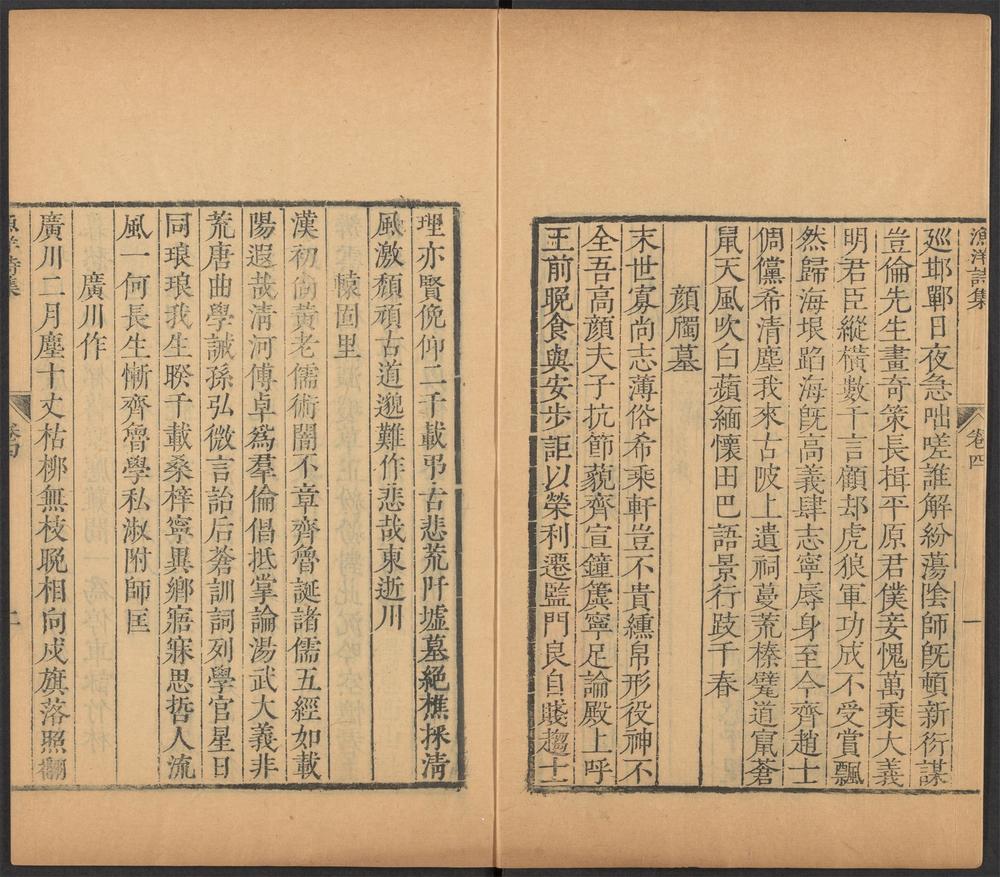 漁洋詩集
卷四
一
廵邯鄲日夜急咄嗟誰解紛蕩陰師旣頓新衍謀
豈倫先生畫奇策長揖平原君僕妾愧萬乘大義
明君臣縱橫數千言顧却虎狼軍功成不受賞飄
然歸海垠蹈海旣高義肆志寧辱身至今齊趙士
倜儻希清塵我來古陂上遺祠蔓荒榛甓道竄蒼
鼠天風吹白蘋緬懷田巴語景行跂千春
顏斶墓
末世寡尚志薄俗希乘軒豈不貴纁帛形役神不
全吾高顏夫子抗節藐齊宣鐘簴寧足論殿上呼
王前晚食與安步詎以榮利遷監門良自賤趨士
理亦賢俛仰二千載弔古悲荒阡墟墓絕樵採清
風激頹頑古道邈難作悲哉東逝川
轅固里
漢初尚黃老儒術闇不章齊魯誕諸儒五經如載
陽遐哉清河傅卓爲羣倫倡抵掌論湯武大義非
荒唐曲學誡孫弘微言詒后蒼訓詞列學官星日
同琅琅我生暌千載桑梓寧異鄉寤寐思哲人流
風一何長生慚齊魯學私淑附師匡
廣川作
廣川二月塵十丈枯桺無枝晚相向戍旗落照翻
漁洋詩集
卷四
二